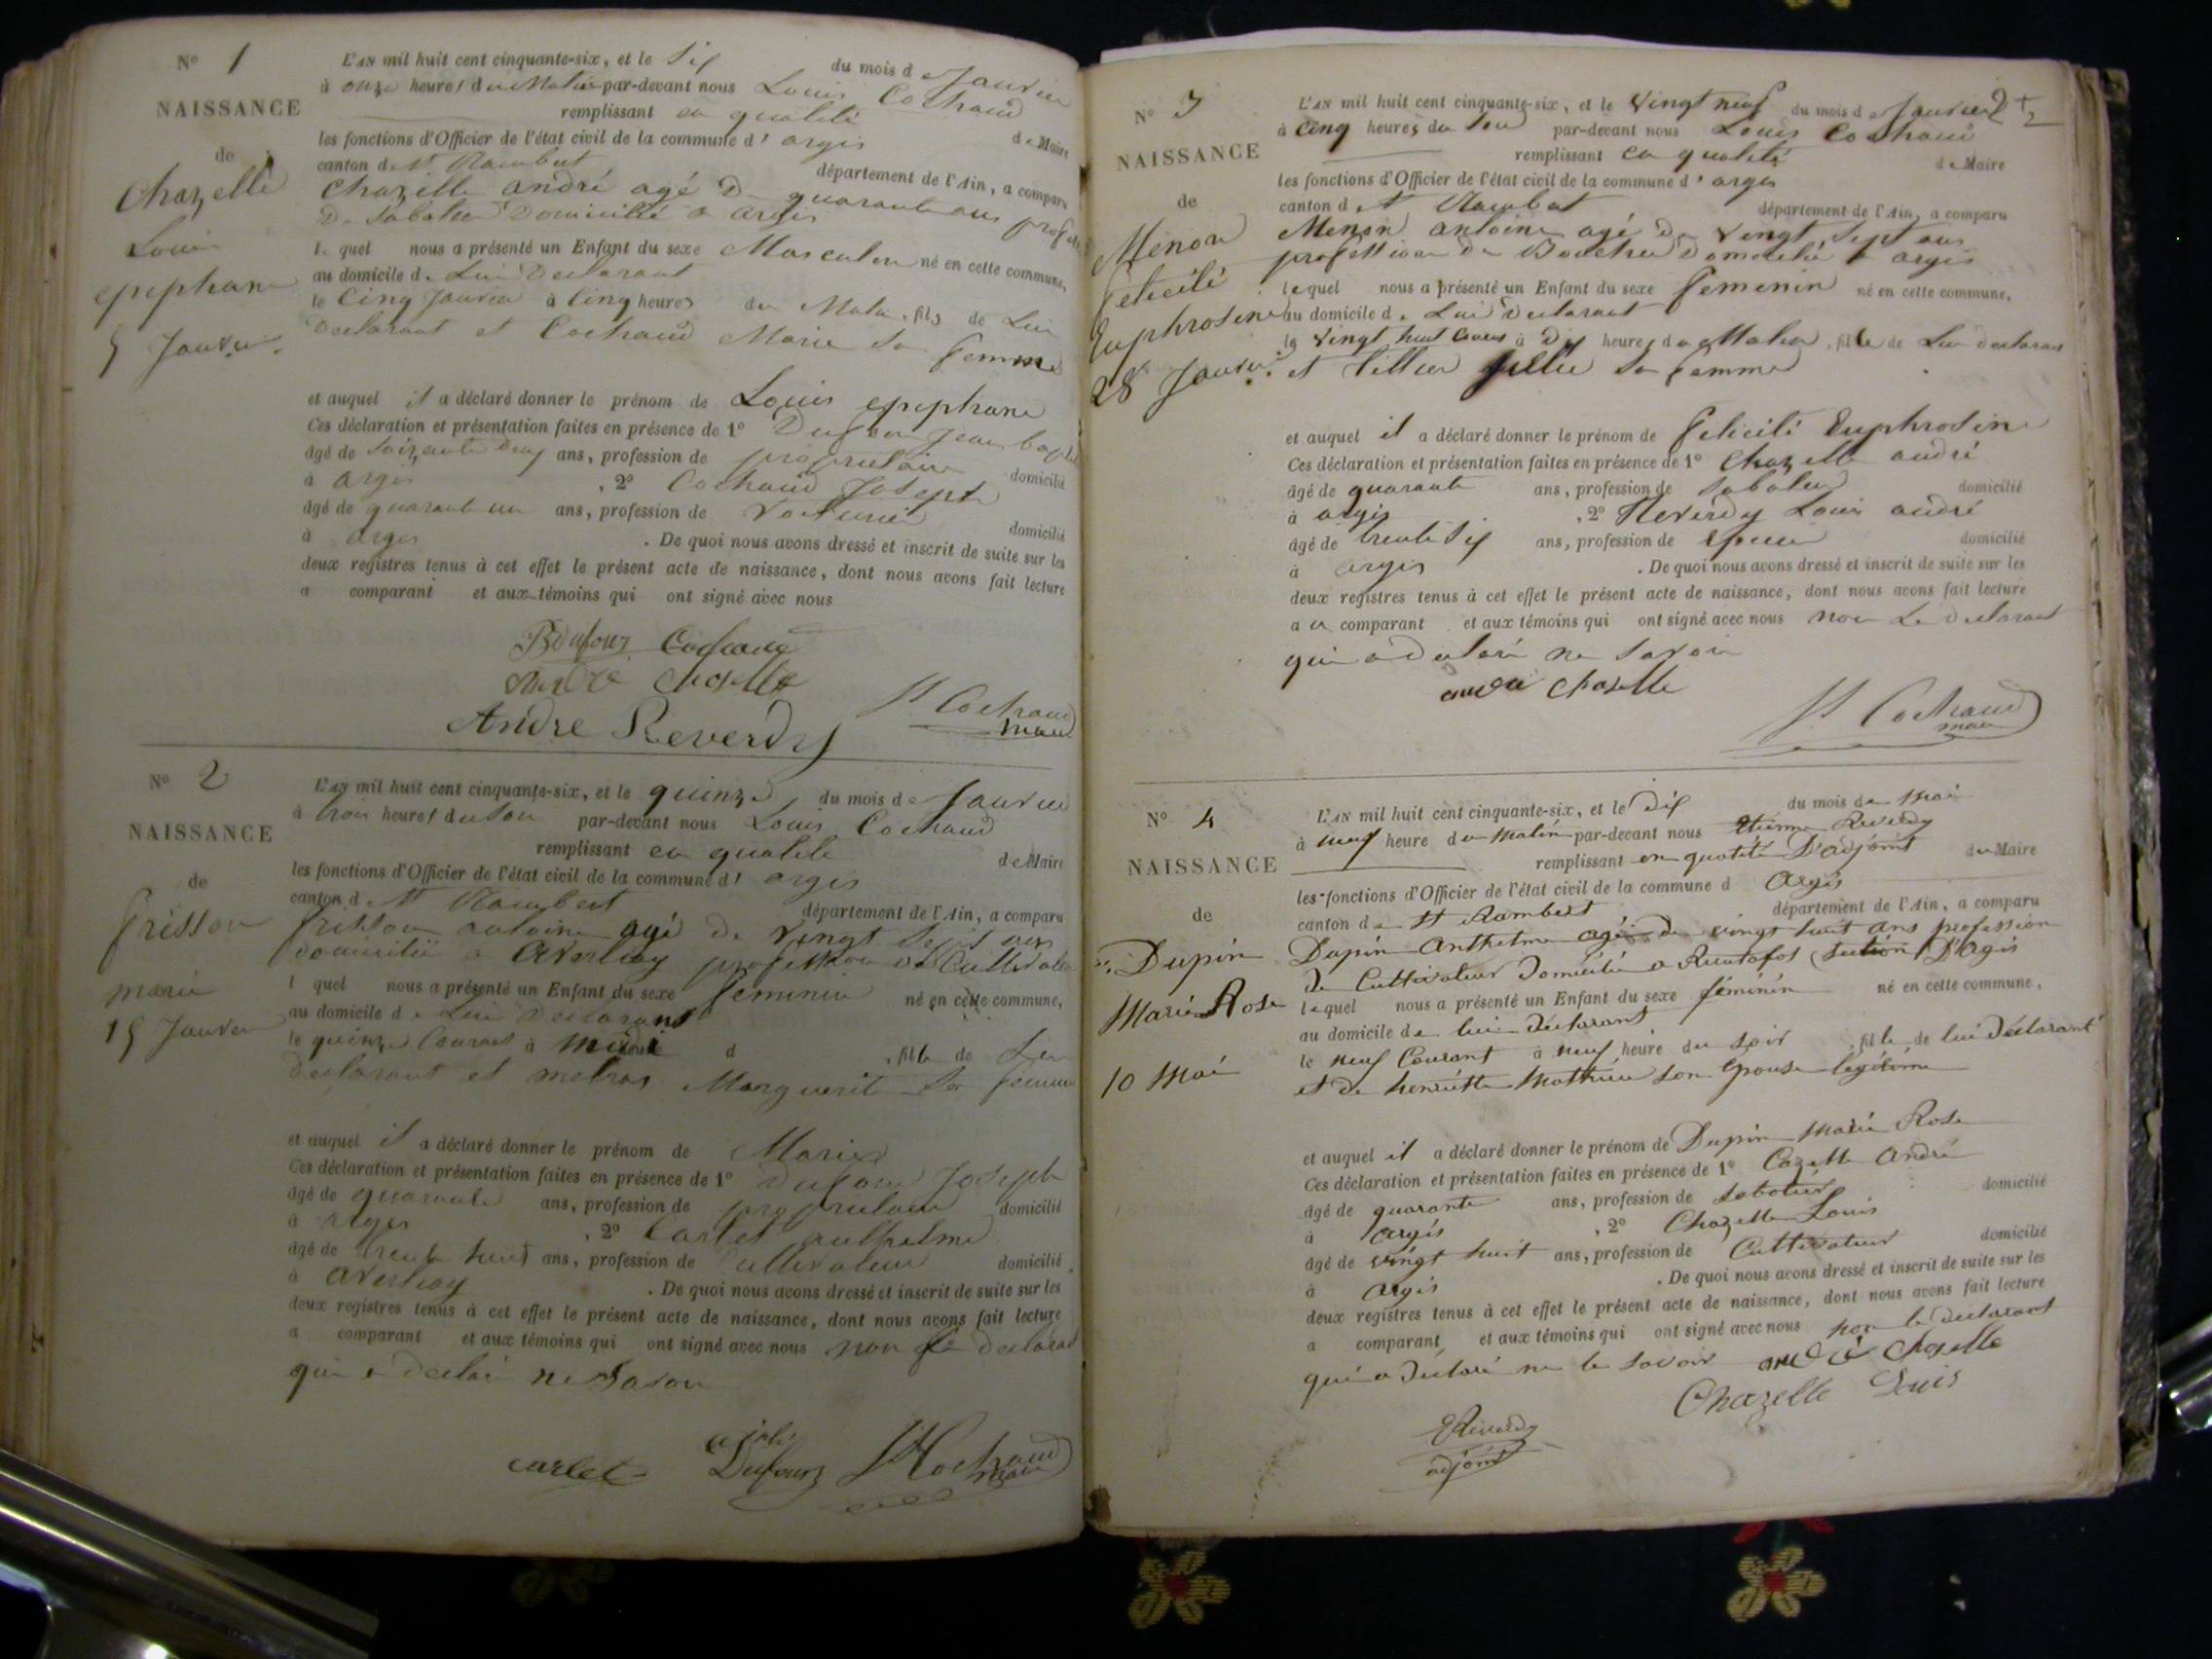 N° 1
NAISSANCE
de
Chazelle
Louis
epiphane
5 Janvier
L'AN mil huit cent cinquante-six, et le Six du mois de Janvier
à onze heures du Matin par-devant nous Louis Cochaud
remplissant en qualité de Maire
les fonctions d'Officier de l'état civil de la commune d' argis
canton de St Rambert département de l'Ain, a comparu
Chazelle andré agé De quarante ans profes
De Sabotier Domicilié a argis
le quel nous a présenté un Enfant du sexe Masculin né en cette commune,
au domicile de Lui Declarant
le Cinq Janvier à Cinq heures du Matin, fils de Lui
Declarant et Cochaud Marie Sa femme
et auquel il a déclaré donner le prénom de Louis epiphane
Ces déclaration et présentation faites en présence de 1° Dufour Jean bap
âgé de Soixante Deux ans, profession de propriétaire domicilié
à argis , 2° Cochaud Joseph
âgé de quarante un ans, profession de Voiturier domicilié
à argis . De quoi nous avons dressé et inscrit de suite sur les
deux registres tenus à cet effet le présent acte de naissance, dont nous avons fait lecture
a comparant et aux témoins qui ont signé avec nous
BDufour Cochaud
André Chazelle
André Reverdy
Lt Cochaud
maire
N° 2
NAISSANCE
de
frisson
marie
15 Janvier
L'AN mil huit cent cinquante-six, et le quinze du mois de Janvier
à trois heures du Soir par-devant nous Louis Cochaud
remplissant en qualité de Maire
les fonctions d'Officier de l'état civil de la commune d' argis
canton d St Rambert département de l'Ain, a comparu
frisson antoine agé de vingt Sept ans
domicilié a Averliay profession de Cultivateur
l quel nous a présenté un Enfant du sexe feminin né en cette commune,
au domicile de Lui Declarant
le quinze Courant à Midi d , fille de Lui
declarant et metras Marguerite Sa femme
et auquel il a déclaré donner le prénom de Marie
Ces déclaration et présentation faites en présence de 1° Dufour Joseph
âgé de quarante ans, profession de propriétaire domicilié
à argis , 2° Carlet anthelme
âgé de trente huit ans, profession de Cultivateur domicilié
à Averliay . De quoi nous avons dressé et inscrit de suite sur les
deux registres tenus à cet effet le présent acte de naissance, dont nous avons fait lecture
a comparant et aux témoins qui ont signé avec nous non le declarant
qui a declaré ne Savoir
carlet Dufour Lt Cochaud
maire
N° 3
NAISSANCE
de
Menon
Felicité
Euphrosine
28 Janvier
L'AN mil huit cent cinquante-six, et le Vingt neuf du mois de Janvier
à Cinq heures du Soir par-devant nous Louis Cochaud
remplissant en qualité de Maire
les fonctions d'Officier de l'état civil de la commune d' argis
canton d St Rambert département de l'Ain, a comparu
Menon antoine agé De Vingt Sept ans
profession De Boucher Domicilié a argis
lequel nous a présenté un Enfant du sexe feminin né en cette commune,
au domicile de Lui Declarant
le Vingt huit Courant à Dix heures du Matin, fille de Lui declarant
et Sa femme
et auquel il a déclaré donner le prénom de Felicité Euphrosine
Ces déclaration et présentation faites en présence de 1° Chazelle andré
âgé de quarante ans, profession de Sabotier domicilié
à argis , 2° Reverdy Louis andré
âgé de trente Six ans, profession de epicier domicilié
à argis . De quoi nous avons dressé et inscrit de suite sur les
deux registres tenus à cet effet le présent acte de naissance, dont nous avons fait lecture
a u comparant et aux témoins qui ont signé avec nous non Le Declarant
qui a Declaré ne Savoir
andré Chazelle
Lt Cochaud
maire
N° 4
NAISSANCE
de
Dupin
Marie Rose
10 Mai
L'AN mil huit cent cinquante-six, et le dix du mois de Mai
à neuf heure du matin par-devant nous Etienne Reverdy
remplissant en qualité D'adjoint du Maire
les fonctions d'Officier de l'état civil de la commune d Argis
canton de St Rambert département de l'Ain, a comparu
Dupin Anthelme agé de vingt huit ans profession
De Cultivateur Domicilié a (section D'Argis
lequel nous a présenté un Enfant du sexe féminin né en cette commune,
au domicile de lui Déclarant
le neuf Courant à neuf heure du soir , fille de lui Déclarant
et de henriette Mathieu son épouse légitime
et auquel il a déclaré donner le prénom de Dupin Marie Rose
Ces déclaration et présentation faites en présence de 1° Cazelle André
âgé de quarante ans, profession de sabotier domicilié
à Argis , 2° Chazelle Louis
âgé de vingt huit ans, profession de Cultivateur domicilié
à Argis . De quoi nous avons dressé et inscrit de suite sur les
deux registres tenus à cet effet le présent acte de naissance, dont nous avons fait lecture
a comparant et aux témoins qui ont signé avec nous non le declarant
qui a Déclaré ne le savoir andré Chazelle
Chazelle Louis
EReverdy
adjoint